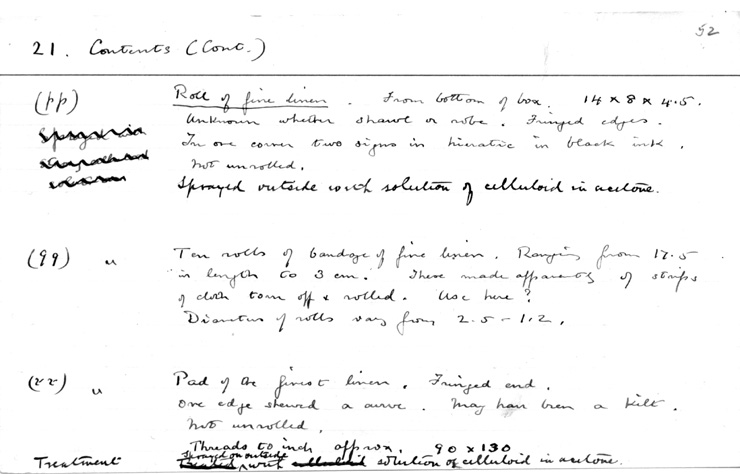 52
21. Contents (Cont.)
(pp) Roll of fine linen. From bottom of box. 14 x 8 x 4.5.
Unknown whether shawl or robe. Fringed edges.
In one corner two signs in hieratic in black ink.
Not unrolled.
Sprayed outside with solution of celluloid in acetone.
(qq) " Ten rolls of bandage of fine linen. Ranging from 17.5
in length to 3 cm. These made apparently of strips
of cloth torn off & rolled. Use here?
Diameters of rolls vary from 2.5 - 1.2.
(rr) " Pad of the finest linen. Fringed end.
One edge showed a curve. May have been a kilt.
Not unrolled.
Threads to inch approx. 90 x 130
sprayed on outside
Treatment with solution of celluloid in acetone.